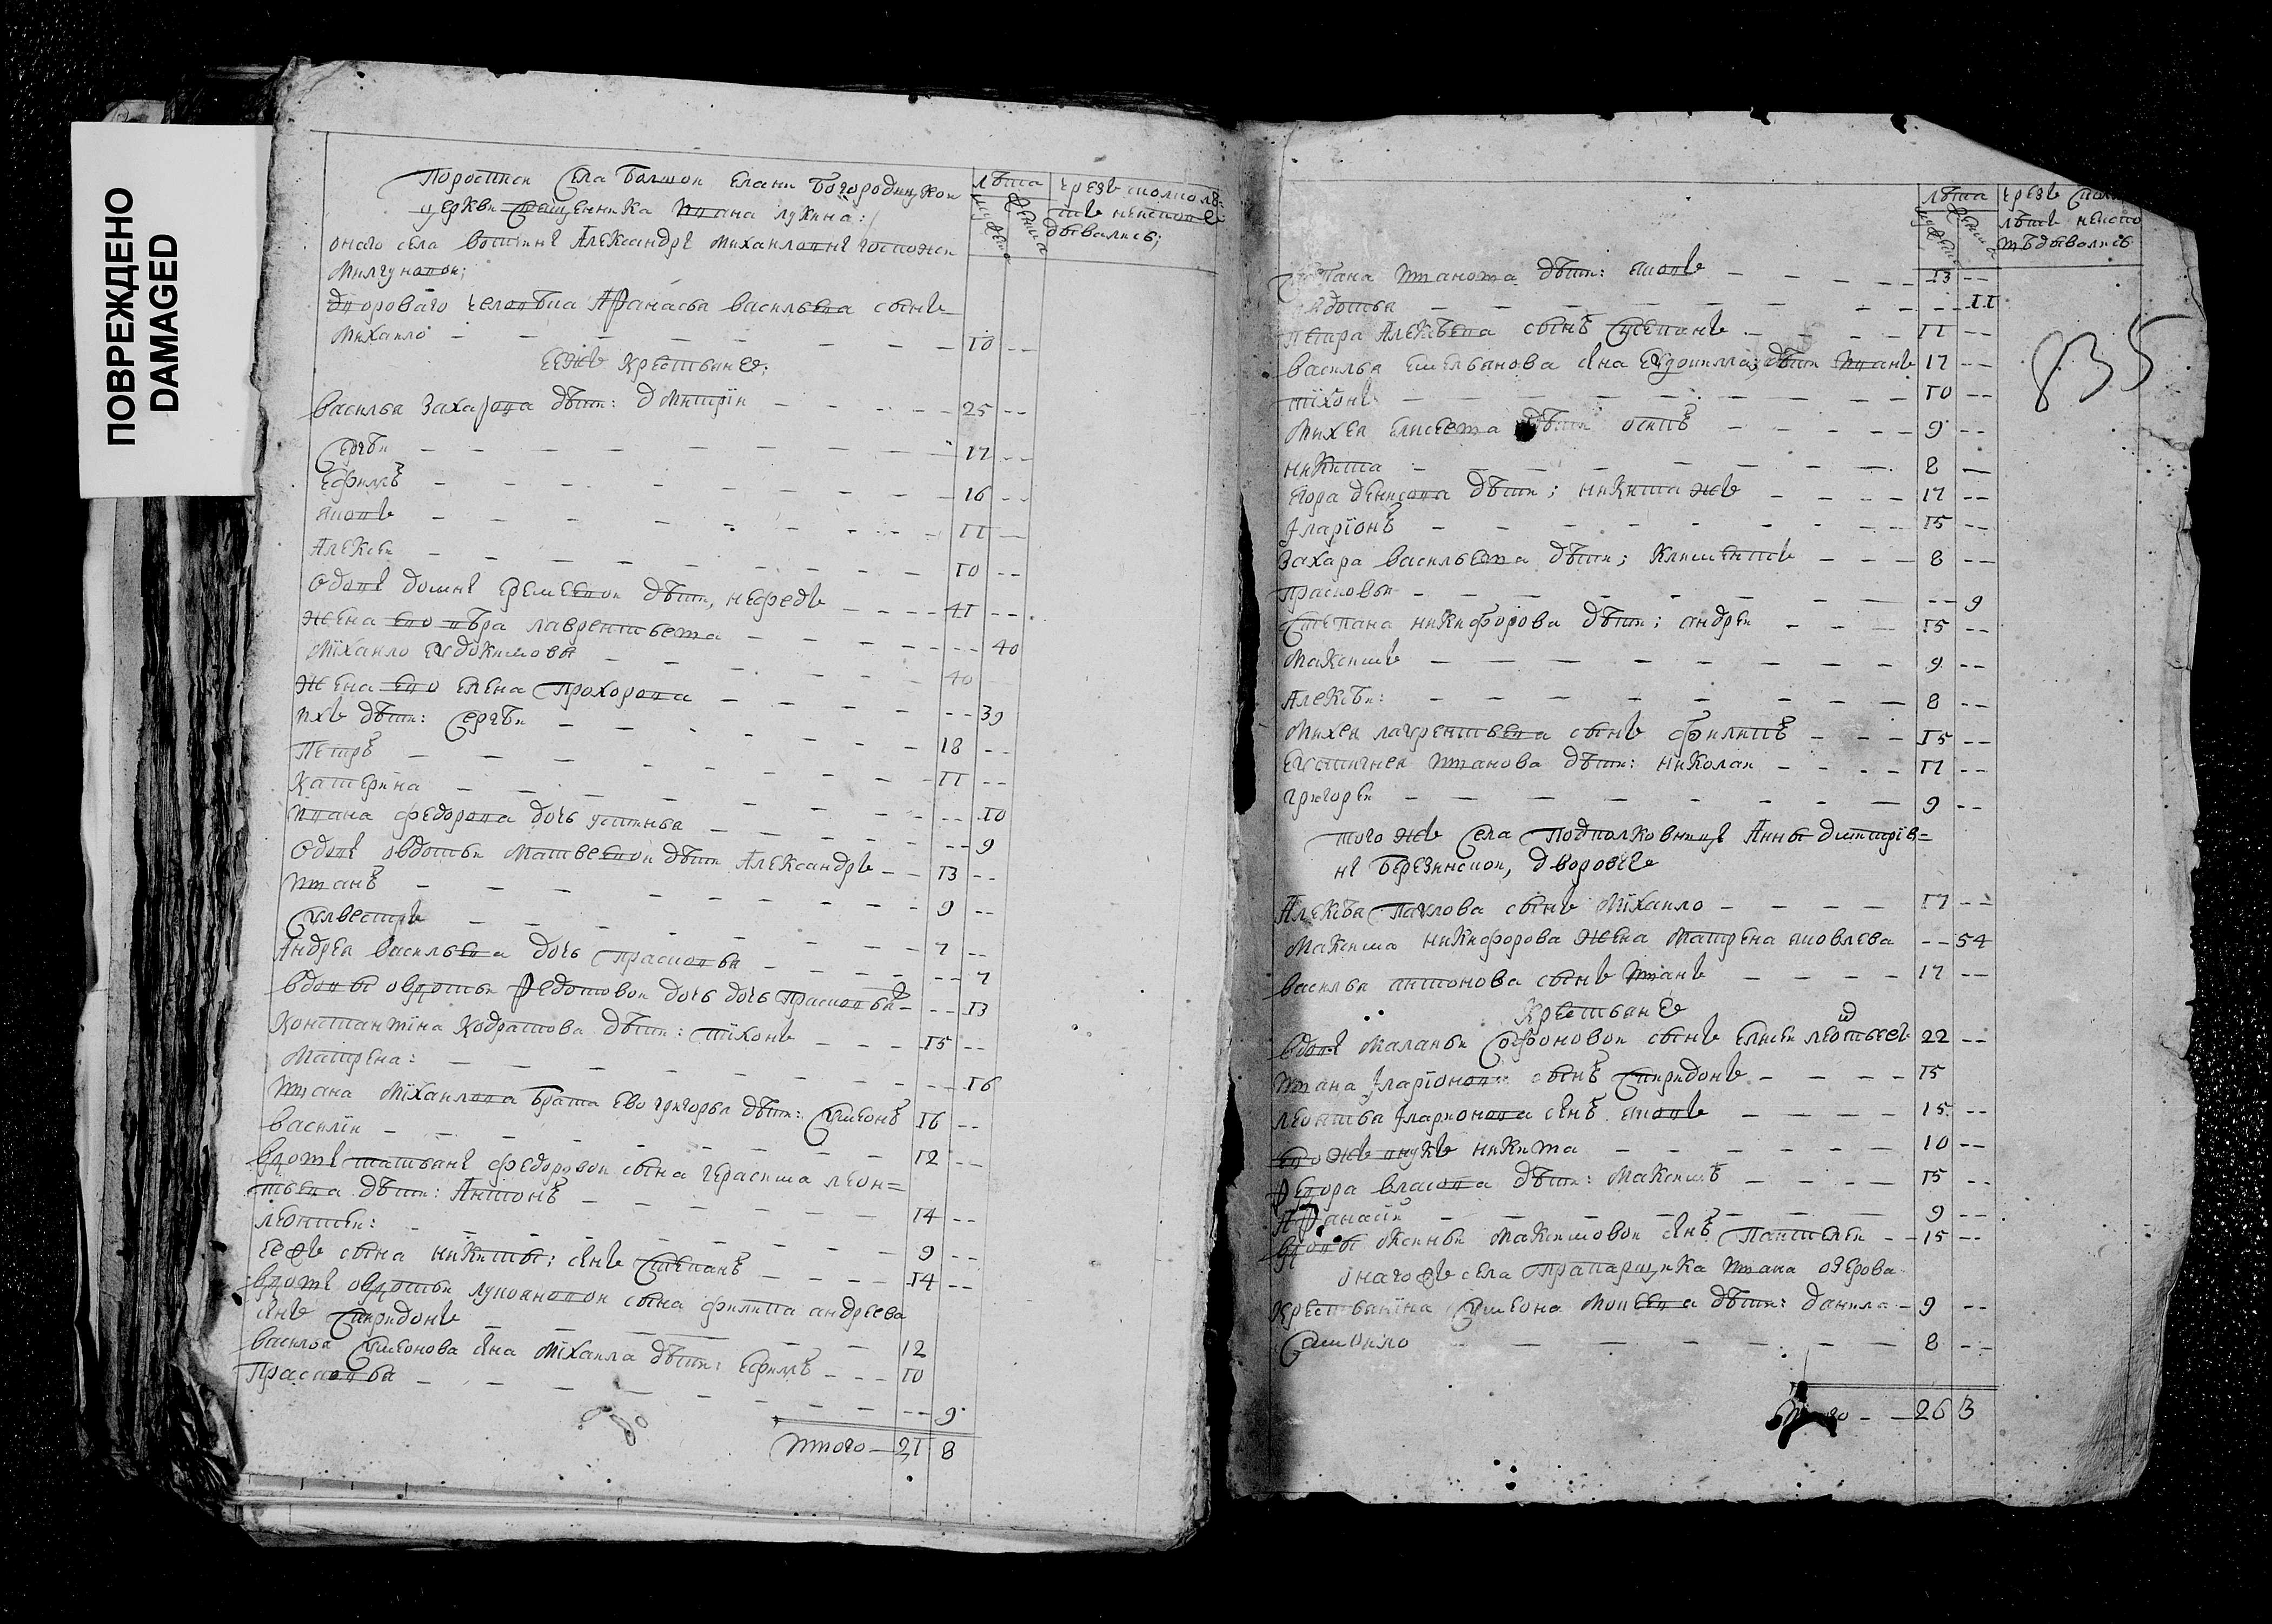 ПОВРЕЖДЕНО
DAMAGED
По росписи села Болшой Елани Богородицкой
церкви священника Ивана Лукина:
лѣта
мужеска
женска
чрезъ сколко лѣ-
тъ неиспове
дывались;
оного села вотчине Александре Михаиловне госпоже
Милгуновой;
дворового человека Афанасья Васильева сынъ
Михаило 10
ее же крестьяне;
Василья Захарова дѣти: Дмитрiй 25
Сергѣй 17
Ефимъ 16
Яковъ 11
Алексей 10
вдове Домне Еремеевой дѣти, Нефедъ 41
жена ево Вѣра Лаврентьева 40
Мiхаило Евдокимовъ 40
жена ево Елена Прохорова 39
ихъ дѣти: Сергѣй 18
Петръ 11
Катерина 10
Ивана Федорова дочь Устинья 9
вдове Овдотьи Матвеевой дѣти Александръ 13
Иванъ 9
Силвестръ 7
Андрея Васильева дочь Прасковья 7
вдовы Овдотьи Федотовой дочь дочь Прасковья 13
Константина Кодратова дѣти: Тiхонъ 15
Матрена: 16
Ивана Мiхаилова брата ево Григорья дѣти: Симеонъ 16
Василiй 12
вдове Татьяне Федоровой сына Герасима Леон=
тьева дѣти: Антонъ 14
Леонтей: 9
ее же сына Никиты: сынъ Степанъ 14
вдове Овдотьи Лукояновой сына Филипа Андреева
сынъ Спиридонъ 12
Василья Симеонова сына Мiхаила дѣти: Ефимъ 10
Прасковья 9
Итого 21 8
лѣта
мужеска
женска
чрезъ сколко
лѣтъ неиспо
вѣдывались
835
Степана Иванова дѣти: Яковъ 13
Овдотья 11
Петра Алексѣева сынъ Степанъ 11
Василья Емельянова сына Евдокима; дѣти Иванъ 17
Тiхонъ 10
Михея Елисеева дѣти Осипъ 9
Никита 8
Егора Денисова дѣти; Никита жъ 17
Iларiонъ 15
Захара Васильева дѣти; Климентъ 8
Прасковья 9
Степана Никифорова дѣти: Андрей 15
Максимъ 9
Алексѣй: 8
Михея Лаврентьева сынъ Филипъ 15
Евстигнея Иванова дѣти: Николай 11
Григорей 9
того жъ села подполковнице Анны Дмитрiв=
не Березинской, дворовые
Алексѣя Павлова сынъ Мiхаило 17
Максима Никифорова жена Матрена Яковлева 54
Василья Антонова сынъ Иванъ 17
Крестьяне
вдове Маланьи Софоновой сынъ Елисей Леонтьевъ 22
Ивана Iларiонова сынъ Спиридонъ 15
Леонтья Iларионова сынъ Яковъ 15
ево жъ внукъ Никита 10
Федора Власова дѣти: Максимъ 15
Афанасiй 9
вдовы Ксиньи Максимовой сынъ Пантелей 15
оного же села прапарщика Ивана Озерова
крестьянина Симеона Мокеева дѣти: Данила 9
Самоило 8
Итого 26 3